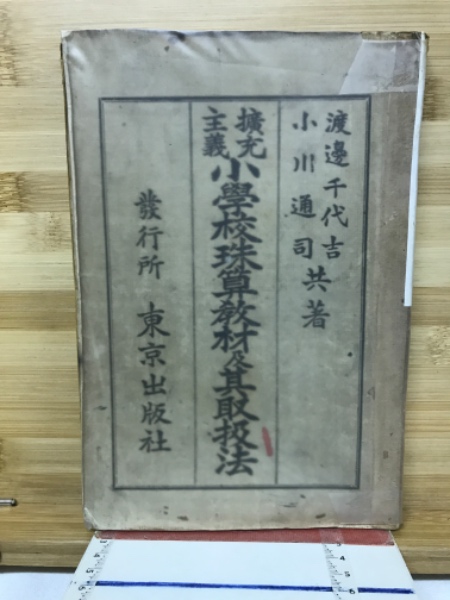 渡邊千代吉
小川通司
共著
擴充
主義
小學校珠算教材及其取扱法
發行所 東京出版社